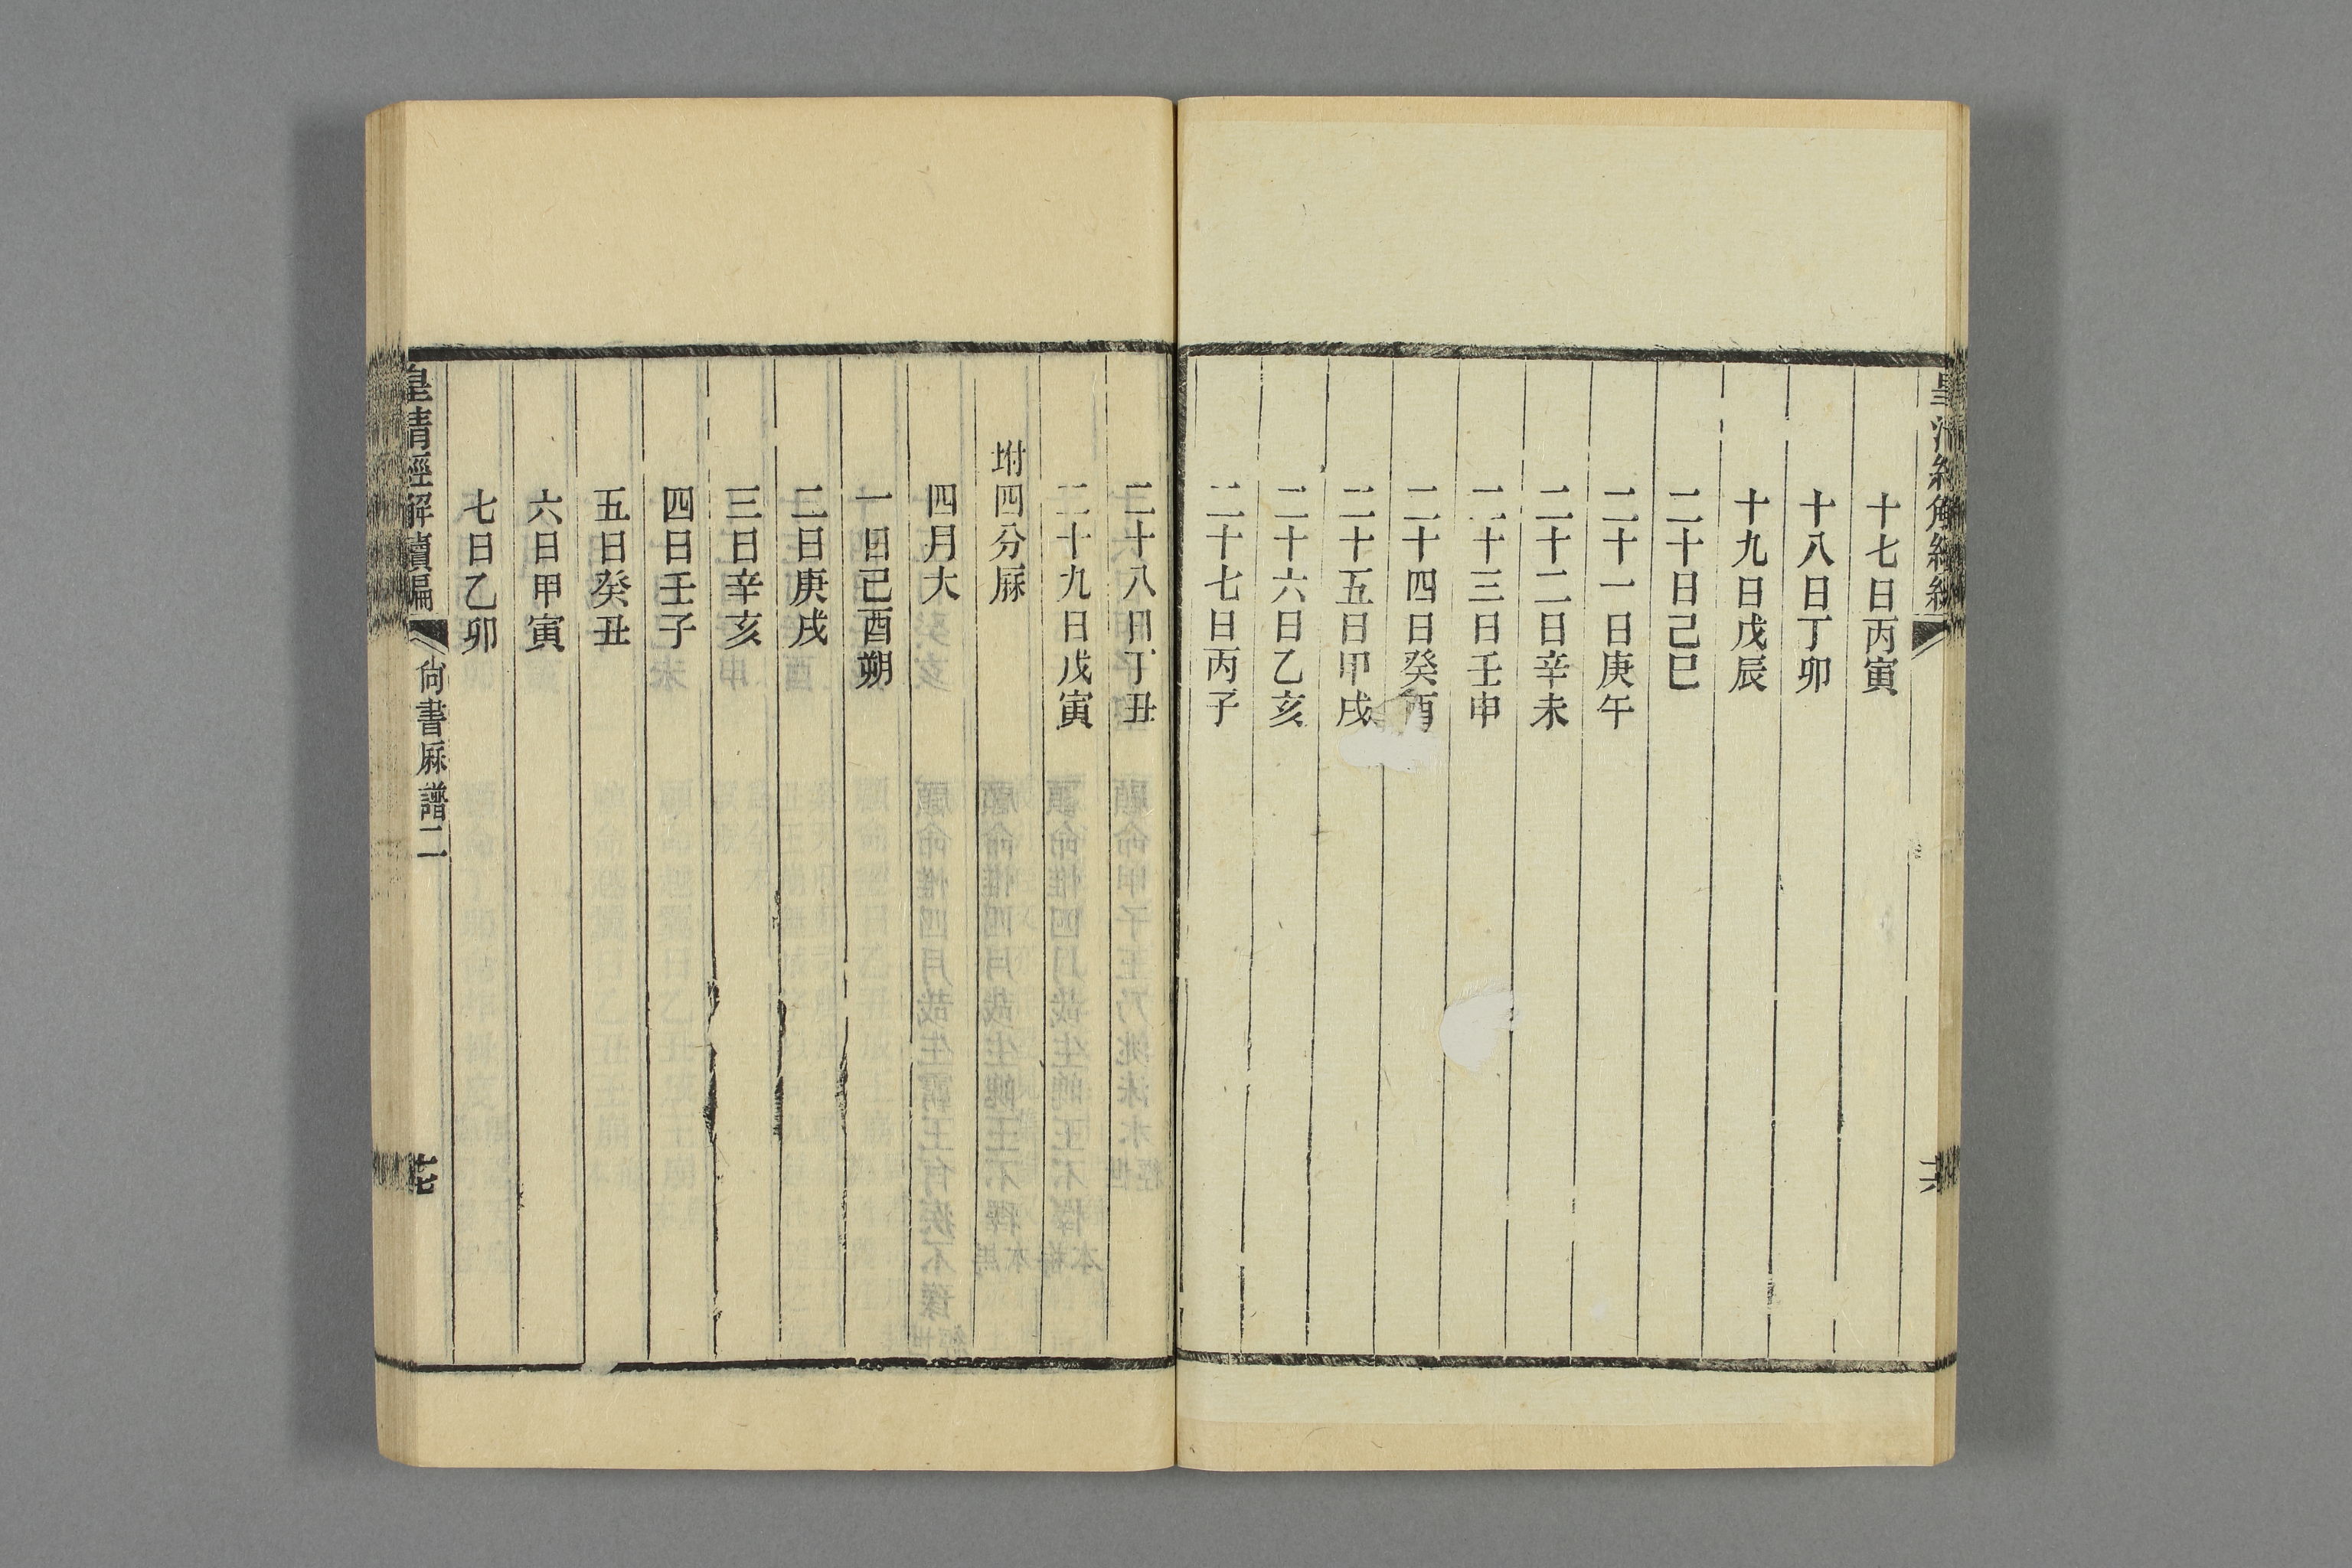 十七日丙寅
十八日丁卯
十九日戊辰
二十日己巳
二十一日庚午
二十二日辛未
二十三日壬申
二十四日癸酉
二十五日甲戌
二十六日乙亥
二十七日丙子
二十八日丁丑
二十九日戊寅
坿四分厤
四月大
一日己酉朔
二日庚戌
三日辛亥
四日壬子
五日癸丑
六日甲寅
七日乙卯
皇清經解續編 尙書厤譜二